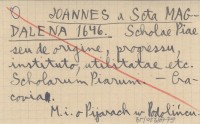 JOANNES a Sta MAG-
DALENA 1646. Scholae Piae
seu de origine, progressu,
instituto, utilitatae etc.
Scholarum Piarum — Cra-
coviae.
M. i. o Pijarach w Podolińcu.